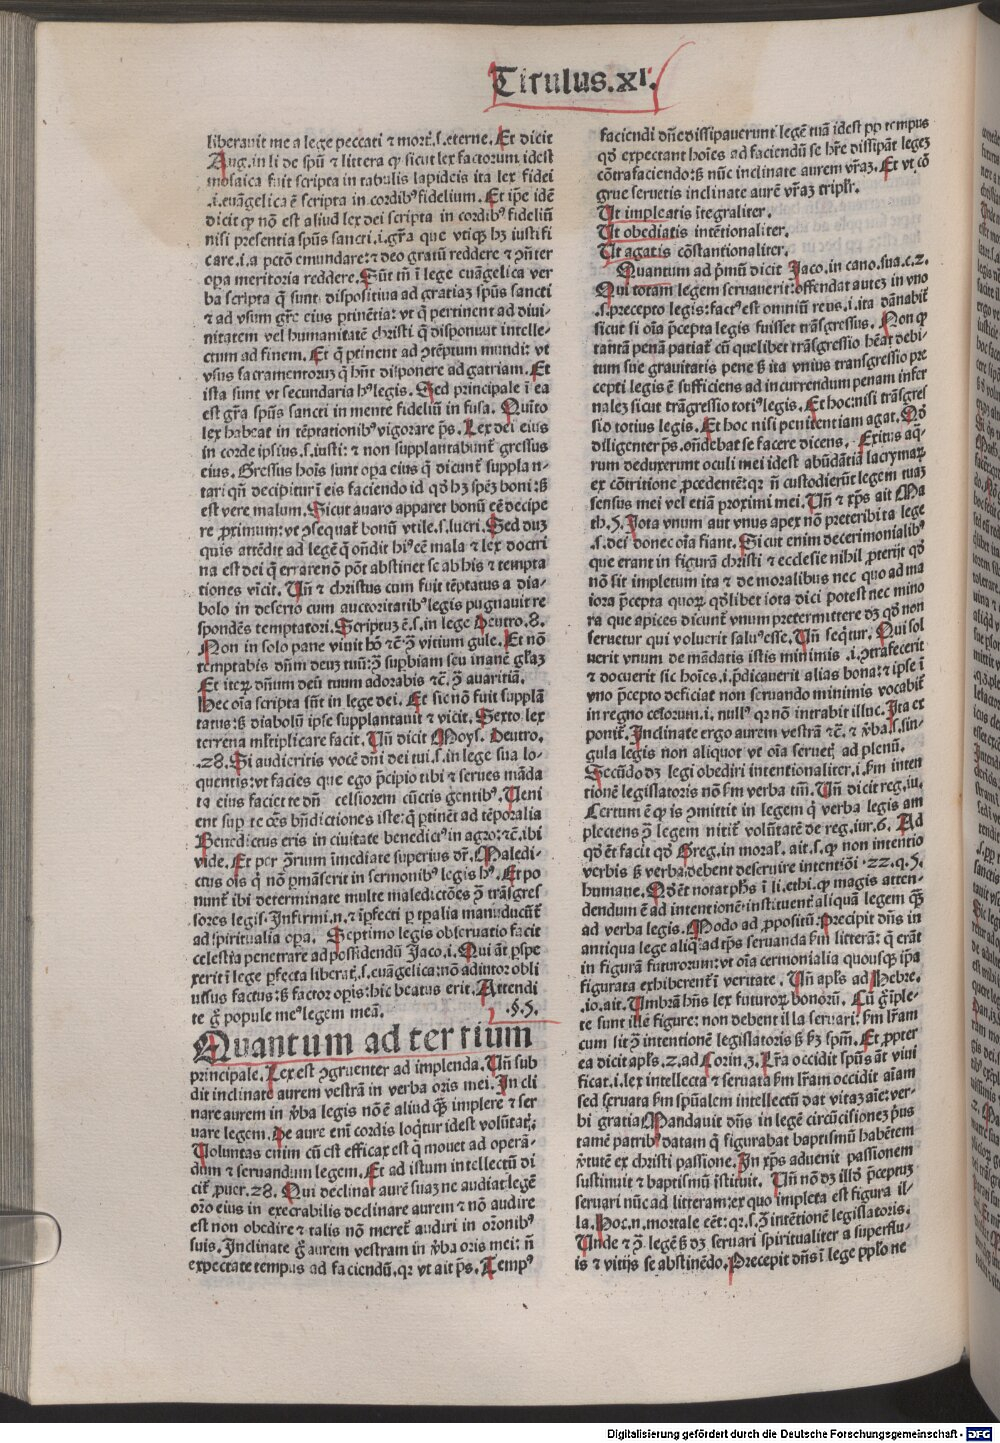 Titulus.xi.
liberauit me a lege peccati ⁊ mort̄.s.eterne. Et dicit
Aug.in li de spū ⁊ littera ꝙ sicut lex factorum idest
mosaica fuit scripta in tabulis lapideis ita lex fidei
.i.euāgelica ē scripta in cordibꝰ fidelium. Et ip̄e idē
dicit ꝙ nō est aliud lex dei scripta in cordibꝰ fideliū
nisi presentia spūs sancti.i.gr̄a que vtiqꝫ hꝫ iustifi
care.i.a pctō emundare:⁊ deo gratū reddere ⁊ oꝑa
opera meritoria reddere. Sūt tn̄ ī lege euāgelica ver
ba scripta q̄ sunt dispositiua ad gratiaꝫ spūs sancti
⁊ ad vsum gr̄e eius ptinētia: vt q̄ pertinent ad diui-
nitatem vel humanitatē christi q̄ disponunt intelle-
ctum ad finem. Et q̄ ptinent ad ꝯtēptum mundi: vt
vsus sacramentoruꝫ q̄ hn̄t disponere ad gatriam. Et
ista sunt vt secundaria hꝰ legis. Sed principale ī ea
est gr̄a spūs sancti in mente fideliū in fusa. Quīto
lex habeat in tēptationibꝰ vigorare p̄s. Lex dei eius
in corde ipsius.s.iusti: ⁊ non supplantabunt̄ gressus
eius. Gressus hoīs sunt oꝑa eius q̄ dicunt̄ supplan-
tari qn̄ decipitur ī eis faciendo id qd̄ hꝫ spēꝫ boni:sꝫ
est vere malum. Sicut auaro apparet bonū eē decipe
re ꝓximum:vt ꝯsequat̄ bonū vtile.s.lucri. Sed duꝫ
quis attēdit ad legē q̄ on̄dit hi eē mala ⁊ lex doctri
na est dei q̄ errare nō pōt abstinet se ab his ⁊ tempta
tiones vicit. Un̄ ⁊ christus cum fuit tēptatus a dia-
bolo in deserto cum auctoritatibꝰ legis pugnauit re
spondēs temptatori. Scriptuꝫ ē.s.in lege Deutro.8.
Non in solo pane viuit hō ⁊c̄.ꝯ̄ vitium gule. Et nō
temptabis dn̄m deuꝫ tuū:ꝯ̄ suꝑbiam seu inanē gl̄aꝫ
Et iteꝝ dn̄um deū tuum adorabis ⁊c̄.ꝯ̄ auaritiā.
Hec oīa scripta sūt in lege dei. Et sic nō fuit supplā
tatus:sꝫ diabolū ipse supplantauit ⁊ vicit. Sexto lex
terrena ml̄tiplicare facit. Un̄ dicit Moys. Deutro.
.28. Si audieritis vocē dn̄i dei tui.s.in lege sua lo-
quentis:vt facies que ego p̄cipio tibi ⁊ serues māda
ta eius faciet te dn̄ celsiorem cūctis gentibꝰ. Ueni
ent suꝑ te oēs bn̄dictiones iste:q̄ ptinēt ad tēporalia
Benedictus eris in ciuitate benedictꝰ in agro:⁊c̄.ibi
vide. Et per ꝯ̄rium īmediate superius dr̄. Maledi-
ctus oīs q̄ nō ꝑmāserit in sermonibꝰ legis hꝰ. Et po
nunt̄ ibi determinate multe maledictōes ꝯ̄ trāsgres
sores legis. Infirmi.n.⁊ īꝑfecti ꝑ tꝑalia manuducūt̄
ad spiritualia oꝑa. Septimo legis obseruatio facit
celestia penetrare ad possidendū Jaco.i. Qui aūt ꝑspe
xerit ī lege ꝑfecta libertat̄.s.euāgelica:nō aditor obli
uisus factus:sꝫ factor oꝑis:hic beatus erit. Attendi
te g̊ popule meꝰ legem meā. .§.5.
Quantum ad tertium
principale. Lex est ꝯgruenter ad implenda. Un̄ sub
dit inclinate aurem vestrā in verba oris mei. In cli
nare aurem in v̄ba legis nō ē aliud q̄ꝫ implere ⁊ ser
uare legem. De aure enī cordis loq̄tur idest volūtat̄;
Voluntas enim cū est efficax est q̄ mouet ad operā-
dum ⁊ seruandum legem. Et ad istum intellectū di
cit̄ ꝓuer.28. Qui declinat aurē suaꝫ ne audiat legē
oīo eius in execrabilis declinare aurem ⁊ nō audire
est non obedire ⁊ talis nō meret̄ audiri in or̄onibꝰ
suis. Inclinate g̊ aurem vestram in v̄ba oris mei: n̄
expectate tempus ad faciendū.qꝛ vt ait p̄s. Tempꝰ
faciendi dn̄e dissipauerunt legē tuā idest pp̄ tempus
qd̄ expectant hoīes ad faciendū se hr̄e dissipāt legeꝫ
cōtrafaciendo:sꝫ nūc inclinate aurem vr̄aꝫ. Et vt cō
grue seruetis inclinate aurē vr̄aꝫ tripl̄r.
Ut impleatis ītegraliter.
Ut obediatis intētionaliter.
Ut agatis cōstantionaliter.
Quantum ad p̄mū dicit Jaco.in cano.sua.c.2.
Qui totam legem seruauerit:offendat auteꝫ in vno
.s.precepto legis:factꝰ est omniū reus.i.ita dānabit̄
sicut si oīa p̄cepta legis fuisset trāsgressus. Non ꝙ
tantā penā patiat̄ cū quelibet trāsgressio hēat debi-
tum sue grauitatis pene sꝫ ita vnius transgressio pre
cepti legis ē sufficiens ad incurrendum penam infer
naleꝫ sicut trāgressio totiꝰ legis. Et hoc:nisi trāsgres
sio totius legis. Et hoc nisi penitentiam agat. Qd̄
diligenter p̄s.on̄debat se facere dicens. Exitus aq̄-
rum deduxerunt oculi mei idest abūdātia lacrymaꝝ
ex cōtritione ꝓcedentē:qꝛ n̄ custodierūt legem tuaꝫ
sensus mei vel etiā proximi mei. Un̄ ⁊ xp̄s ait Ma
th.5. Iota vnum aut vnus apex nō preteribit a lege
.s.dei donec oīa fiant. Sicut enim de cerimonialibꝰ
que erant in figurā christi ⁊ ecclesie nihil ꝓterijt qd̄
nō sit impletum ita ⁊ de moralibus nec quo ad ma
iora p̄cepta quoꝝ qd̄libet iota dici potest nec mino
ra que apices dicunt̄ vnum pretermittere dꝫ qd̄ non
seruetur qui voluerit saluꝰ esse. Un̄ seq̄tur. Qui sol
uerit vnum de mādatis istis minimis .i.ꝯtrafecerit
⁊ docuerit sic hoīes.i.p̄dicauerit alias bona:⁊ ipse ī
vno p̄cepto deficiat non seruando minimis vocabit̄
in regno celorum.i. nullꝰ qꝛ nō intrabit illuc. Ita et
ponit̄. Inclinate ergo aurem vestrā ⁊c̄ ⁊ v̄ba.s.sin-
gula legis non aliquot vt oīa seruet; ad plenū.
Secūdo dꝫ legi obediri intentionaliter.i.ẜm inten
tionē legislatoris nō ẜm verba tm̄. Un̄ dicit reg.iu.
Certum ē ꝙ is ꝯmittit in legem q̄ verba legis am
plectens ꝯ̄ legem nitit̄ volūtatē de reg.iur.6. Ad
qd̄ et̄ facit qd̄ Greg.in moral̄.ait.s.ꝙ non intentio
verbis sꝫ verba debent deseruire intentiōi .22.q.5.
humane. Qd̄ et̄ notat ph̄s ī li.ethi.ꝙ magis atten-
dendum ē ad intentionē instituent̄ aliquā legem q̄ꝫ
ad verba legis. Modo ad ꝓpositū:Precipit dn̄s in
antiqua lege aliq̄ ad tp̄s seruanda ẜm litterā: q̄ erāt
in figurā futurorum:vt oīa cermonialia quousqꝫ īpa
figurata exhiberent̄ ī veritate. Un̄ apl̄s ad Hebre.
.io.ait. Umbrā hn̄s lex futuroꝝ bonorū. Cū g̊ īple-
te sunt ille figure: non debent illa seruari: ẜm lr̄am
cum sit ꝯ̄ intentionē legislatoris sꝫ ẜꝫ spm̄. Et ꝓpter
ea dicit apl̄s.2.ad Corin.3. Lr̄a occidit spūs aūt viui
ficat.i.lex intellecta ⁊ seruata ẜm lr̄am occidit aīam
sed seruata ẜm spūalem intellectū dat vitaꝫ aīe:ver-
bi gratia Mandauit dn̄s in legē circūcisioneꝫ p̄us
tamē patribꝰ datam q̄ figurabat baptismū habētem
v̄tutē ex christi passione. In xp̄s aduenit passionem
sustinuit ⁊ baptismū īstituit. Un̄ nō dꝫ illd̄ p̄ceptuꝫ
seruari nūc ad litteram:ex quo impleta est figura il-
la. Hoc.n.mortale eēt:qꝛ.s.ꝯ̄ intētionē legislatoris.
Unde ⁊ ꝯ̄ legē sꝫ dꝫ seruari spiritualiter a superflu-
is ⁊ vitijs se abstinēdo. Precepit dn̄s ī lege pplo ne
Digitalisierung gefördert durch die Deutsche Forschungsgemeinschaft - DFG